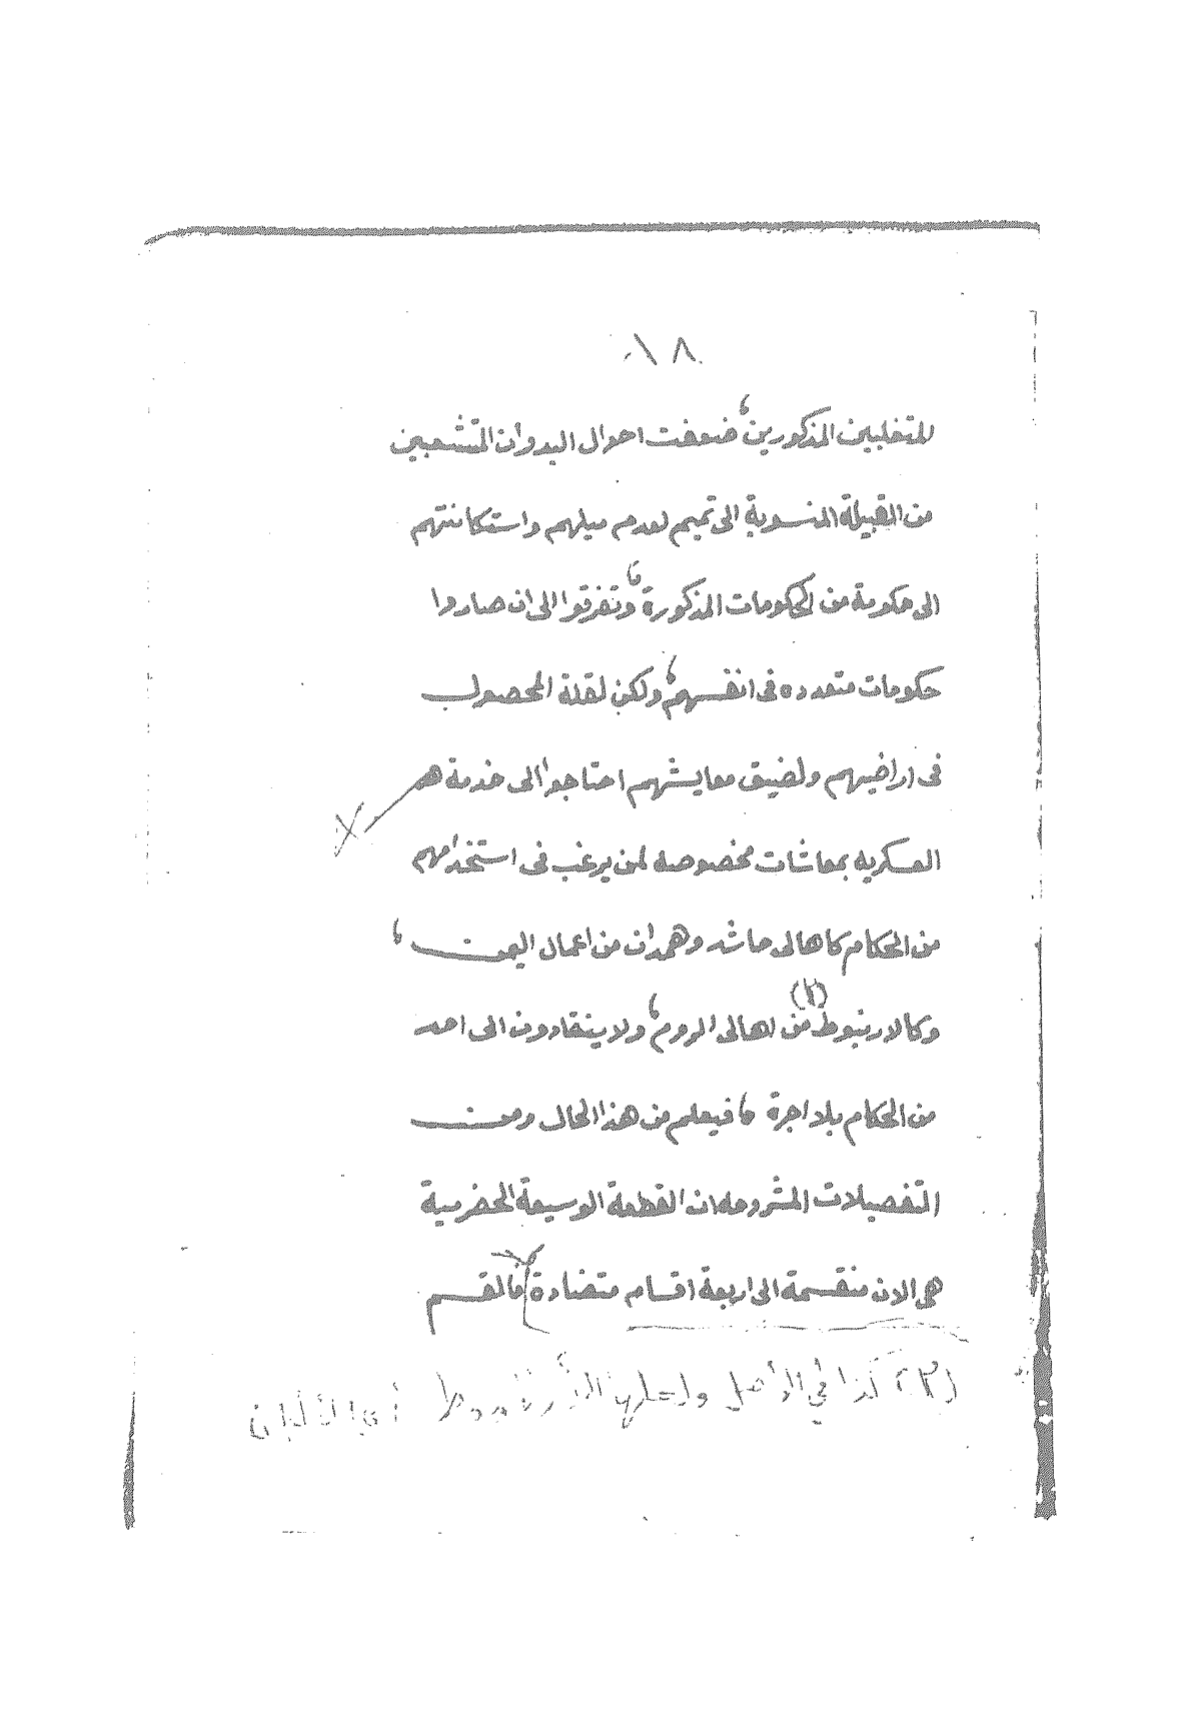 ١٨
للمتغلبين المذكورين، ضعفت احوال البدوان المتشعبين
من القبيلة المنسوبة الى تميم لعدم ميلهم واستكانتهم
الى حكومة من الحكومات المذكورة، وتفرقوا الى ان صاروا
حكومات متعدده فى انفسهم، ولكن لقلة المحصول
فى اراضيهم ولضيق معايشهم احتاجوا الى خدمة هـ
العسكريه بمعاشات مخصوصه لمن يرغب فى استخدامهم
من الحكام كاهالى حاشد وهمدان من اعمال اليمن،
وكالارنبوط (٢) من اهالى الروم، ولا ينقادون الى احد
من الحكام بلا اجرة، فيعلم من هذا الحال ومن
التفصيلات المشروحه ان القطعة الوسيعة الحضرمية
هى الان منقسمة الى اربعة اقسام متضادة، فالقسم
(٢) كذا في الأصل ولعلها الأرنؤوط أي الألبان